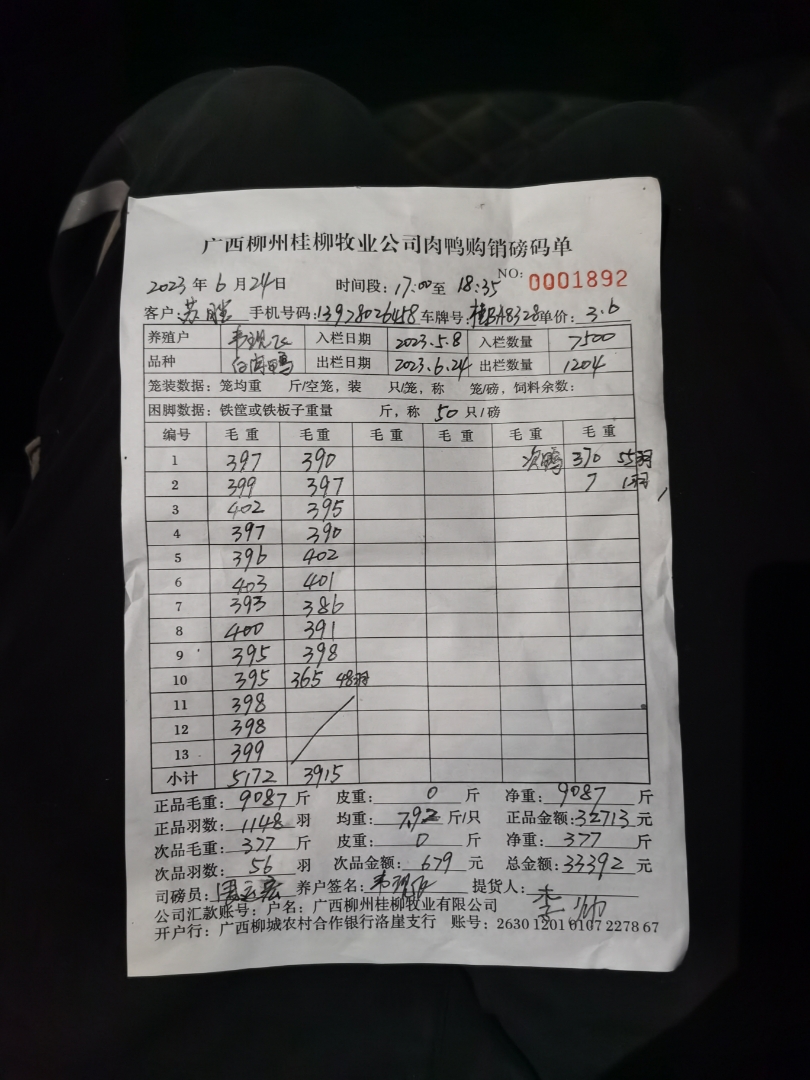 广西柳州桂柳牧业公司肉鸭购销磅码单
2023年6月24日 时间段:17:00至18:35 NO: 0001892
客户:苏胜 手机号码:13978026458 车牌号:桂BA8328 单价:3.6
养殖户 入栏日期 2023.5.8 入栏数量 7500
品种 白肉鸭 出栏日期 2023.6.24 出栏数量 1204
笼装数据:笼均重 斤/空笼,装 只/笼,称 笼/磅,饲料余数:
困脚数据:铁筐或铁板子重量 斤,称 50 只/磅
编号 毛重 毛重 毛重 毛重 毛重 毛重
1 397 390 次鸭 370 55羽
2 399 397 7 1羽
3 402 395
4 397 390
5 396 402
6 403 401
7 393 386
8 400 391
9 395 398
10 395 365 48羽
11 398
12 398
13 399
小计 5172 3915
正品毛重:9087斤 皮重:0斤 净重:9087斤
正品羽数:1148羽 均重:7.92斤/只 正品金额:32713元
次品毛重:377斤 皮重:0斤 净重:377斤
次品羽数:56羽 次品金额:679元 总金额:33392元
司磅员: 养户签名: 提货人:李
公司汇款账号:户名:广西柳州桂柳牧业有限公司
开户行:广西柳城农村合作银行洛崖支行 账号:2630 1201 0107 2278 67